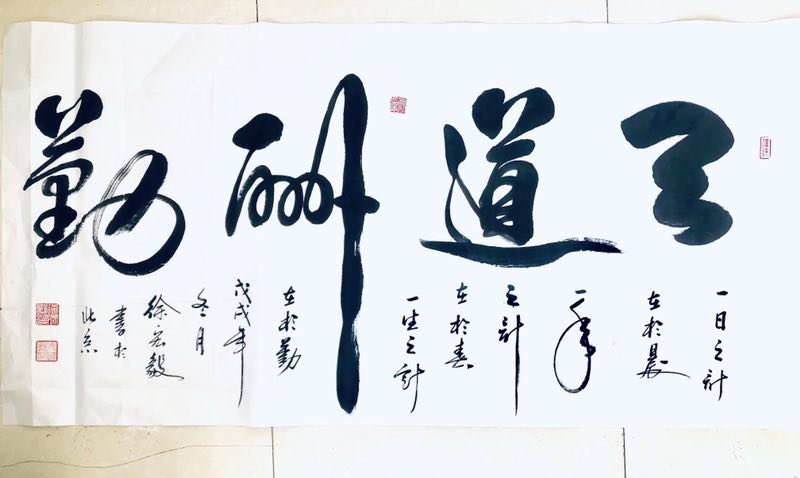 天道酬勤
一日之计
在於晨
一年
之计
在於春
一生之计
在於勤
戊戌年
冬月
徐宏毅
书於
北京